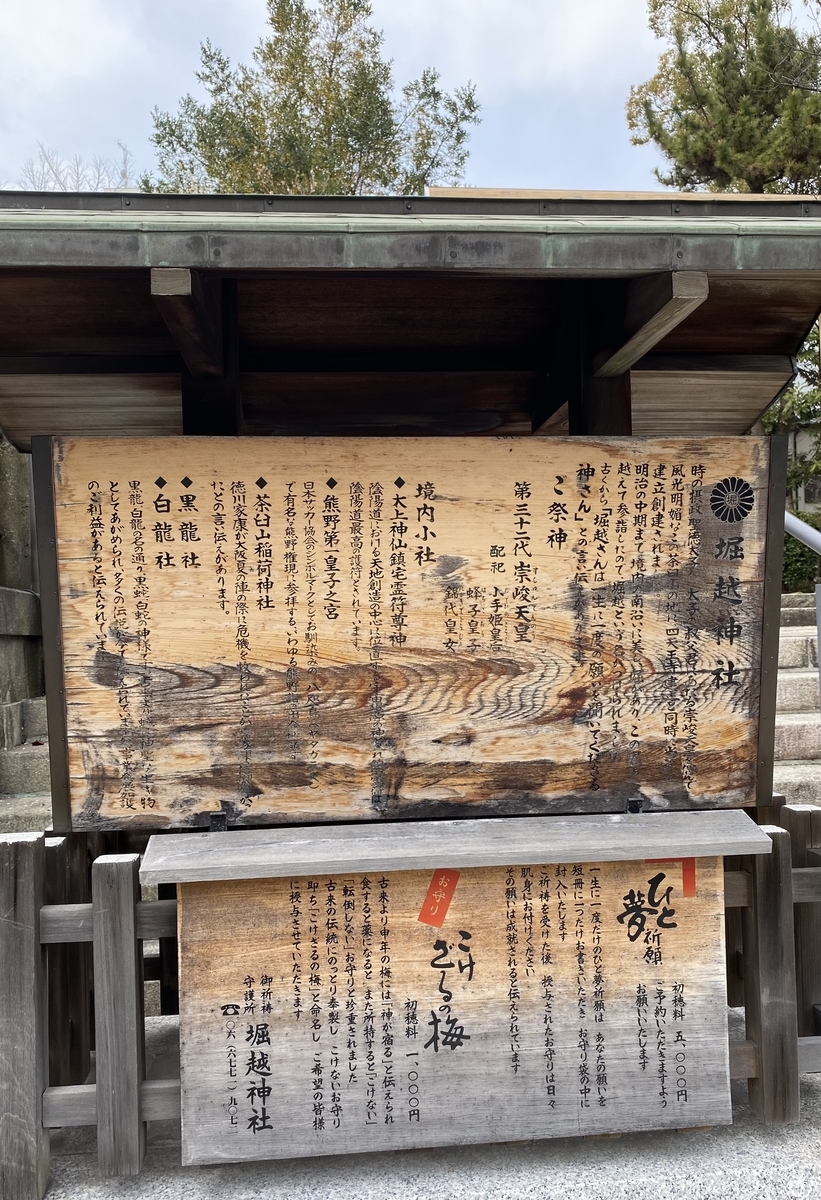 堀
堀越神社
時の摂政聖徳太子
風光明媚なこの茶臼山の地に四天王寺建立と同時に
建立創建されま
明治の中期まで境内の南沿いに美しい堀があり、この堀を
越えて参詣したので、堀越という名が
古くから「堀越さんは一生に一度の願いを聞いてくださる
神さん」との言い伝えがあります。
ご祭神
第三十二代 崇峻天皇
すしゅんてんのう
配祀 小手姫皇后
蜂子皇子
錦代皇女
境内小社
◆太上神仙鎮宅霊符尊神
陰陽道における天地創造の中心に位置
陰陽道最高の護符とされています。
◆熊野第一皇子之宮
日本サッカー協会のシンボルマークとしてお馴染みの、八咫
で有名な熊野権現に参拝する、いわゆる熊野
◆茶臼山稲荷神社
徳川家康が大坂夏の陣の際に危機を
たとの言い伝えがあります。
◆黒龍社
◆白龍社
黒龍 白龍の名の通り、黒蛇 白蛇の神様です
としてあがめられ、多くの伝説
のご利益があると伝えられています。
ひと夢祈願
初穂料 五、〇〇〇円
ご予約いただきますよう
お願いいたします
一生に一度だけのひと夢祈願は あなたの願いを
短冊に一つだけお書きいただき お守り袋の中に
封入いたします
ご祈祷を受けた後 授与されたお守りは日々
肌身にお付けください
その願いは成就されると伝えられています
お守り
こけざるの梅
初穂料 一、〇〇〇円
古来より申年の梅には「神が宿る」と伝えられ
食すると薬になると また所持すると「こけない」
「転倒しない」お守りと珍重されました
古来の伝統にのっとり奉製し こけないお守り
即ち「こけざるの梅」と命名し ご希望の皆様
に授与させていただきます
御祈祷
守護所 堀越神社
☎〇六（六七七一）九〇七二